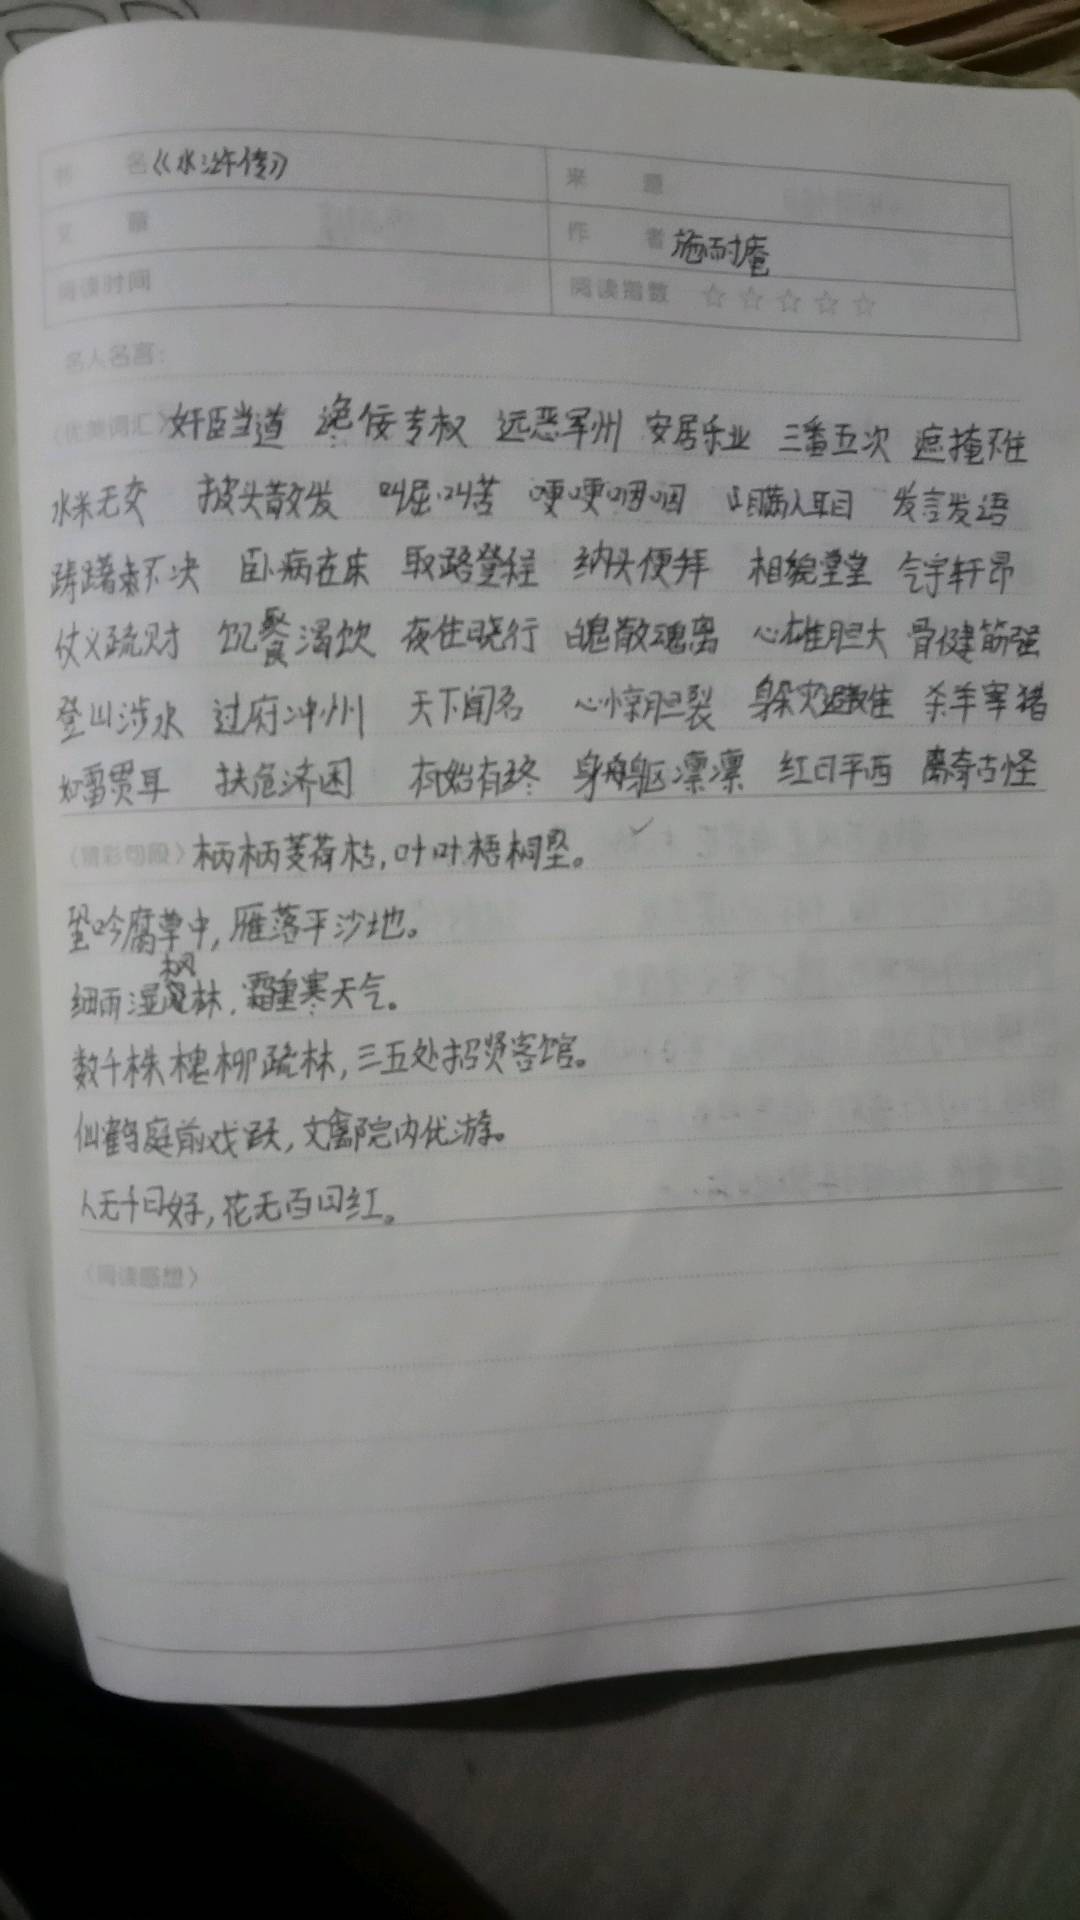 书 名 《水浒传》 来 源
文 章 作 者 施耐庵
阅读时间 阅读指数 ☆☆☆☆☆
名人名言:
〈优美词汇〉奸臣当道 谗佞专权 远恶军州 安居乐业 三番五次 遮掩不住
水米无交 披头散发 叫屈叫苦 哽哽咽咽 瞒人耳目 发言发语
踌躇未不决 卧病在床 取路登程 纳头便拜 相貌堂堂 气宇轩昂
仗义疏财 饥餐渴饮 夜住晓行 魄散魂离 心雄胆大 骨健筋强
登山涉水 过府冲州 天下闻名 心惊胆裂 躲灾避难 杀羊宰猪
如雷贯耳 扶危济困 有始有终 身躯凛凛 红日平西 离奇古怪
〈精彩句段〉柄柄芰荷枯,叶叶梧桐坠。
蛩吟腐草中,雁落平沙地。
细雨湿枫林,霜重寒天气。
数千株槐柳疏林,三五处招贤客馆。
仙鹤庭前戏跃,文禽院内优游。
人无千日好,花无百日红。
〈阅读感想〉